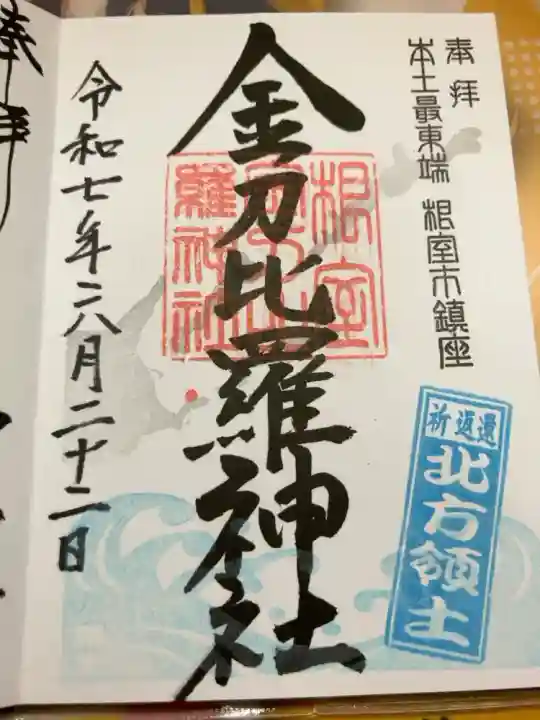 奉拝
本土最東端 根室市鎮座
金刀比羅神社
根室
金刀比
羅神社
祈返還
北方領土
令和七年八月二十二日
奉拝